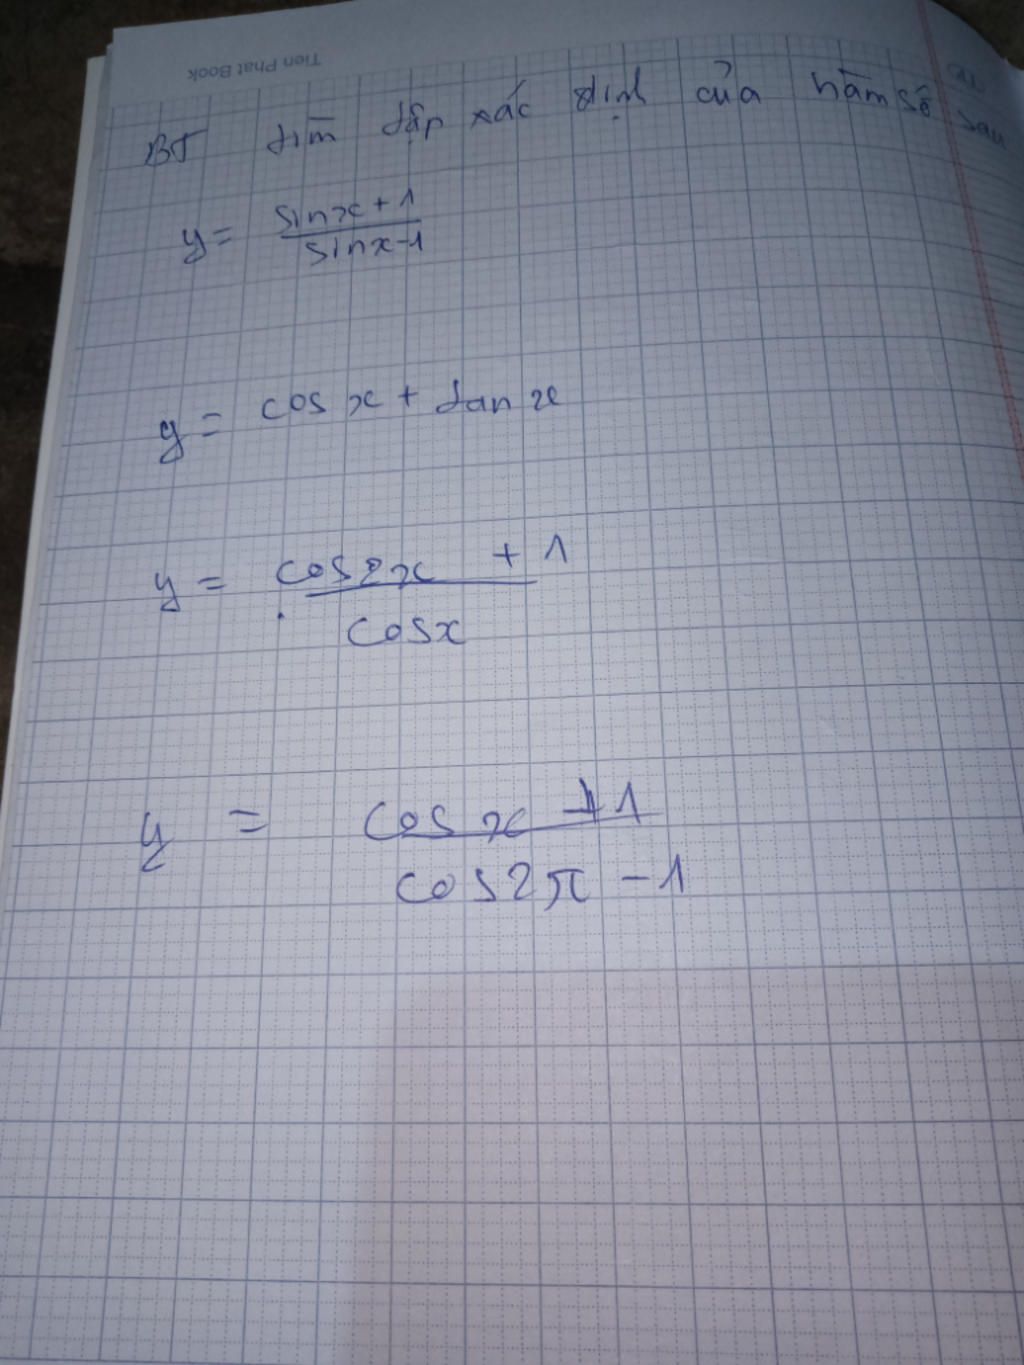 Tien Phat Book
BT tìm tập xác định của hàm số sau
y = \frac{sinx + 1}{sinx - 1}
y = cos x + tan x
y = \frac{cos2x + 1}{cosx}
y = \frac{cos x + 1}{cos2π - 1}